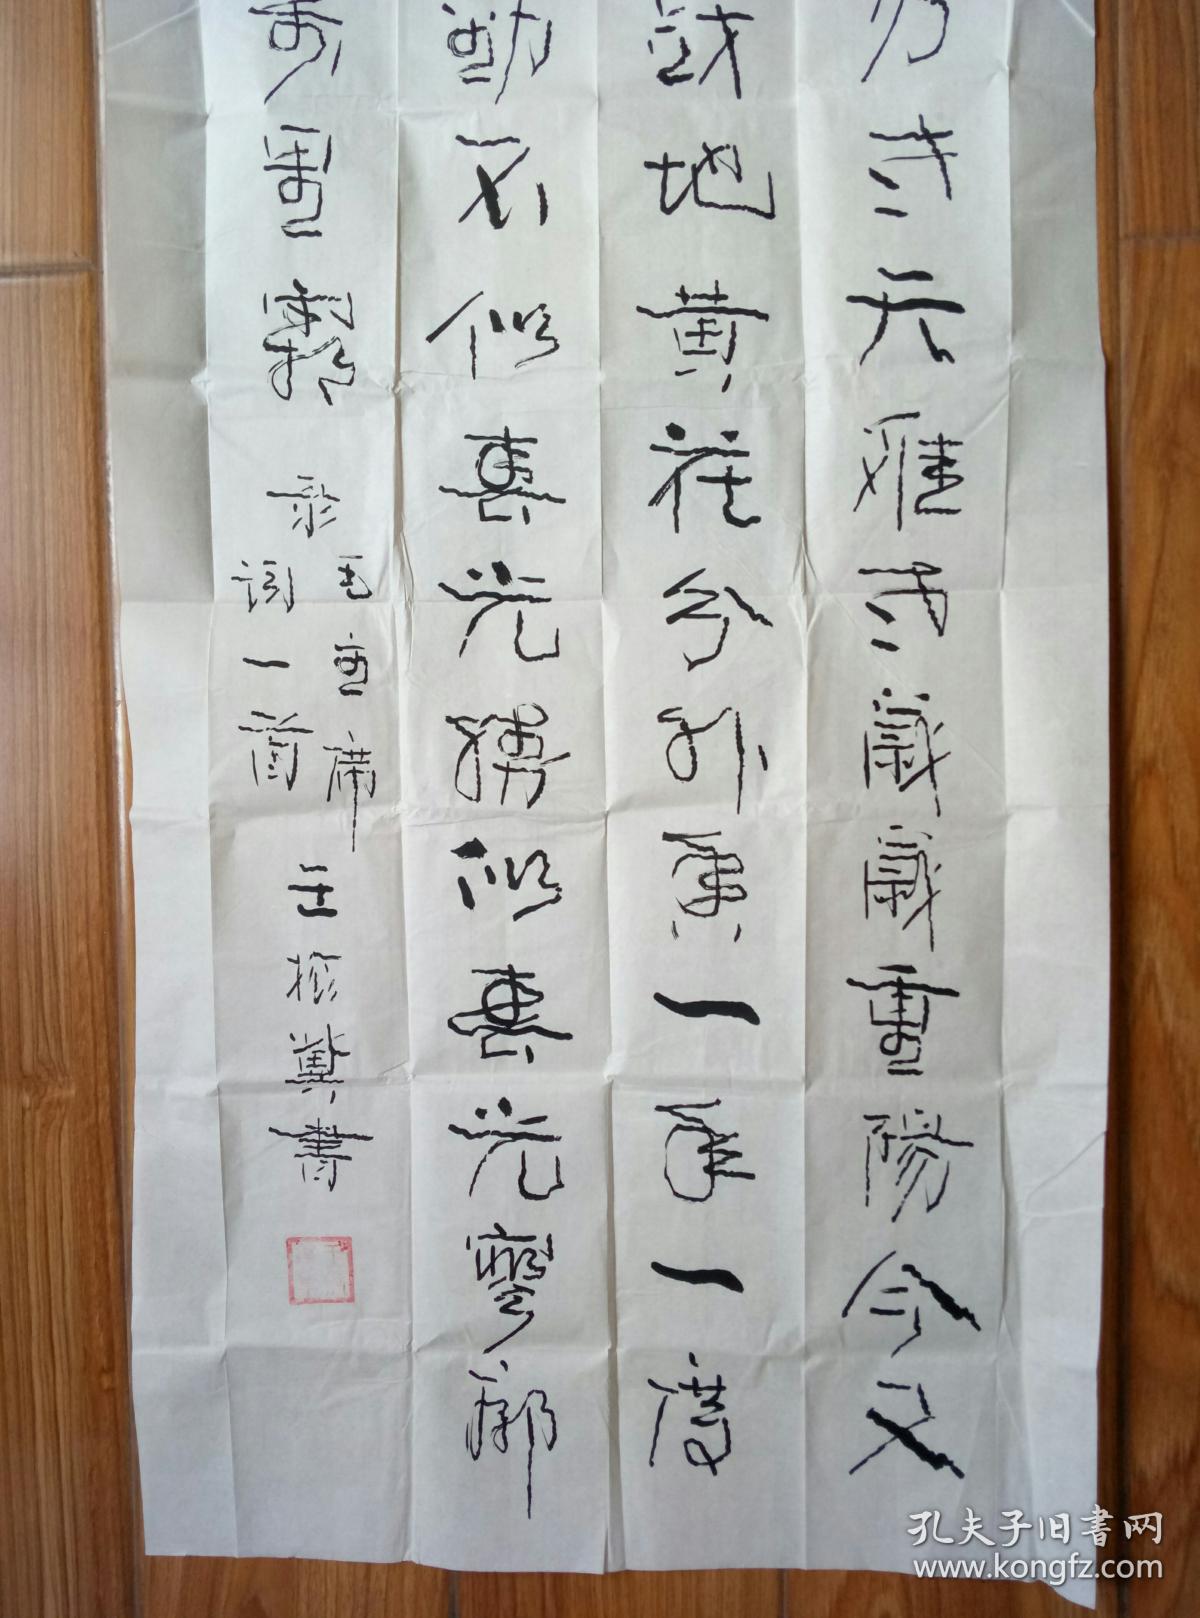 易老天難老歲歲重陽今又
战地黄花分外香一年一度
勁不似春光勝似春光寥廓
萬里霜
录毛主席
词一首
王冀書
孔夫子旧書网
www.kongfz.com